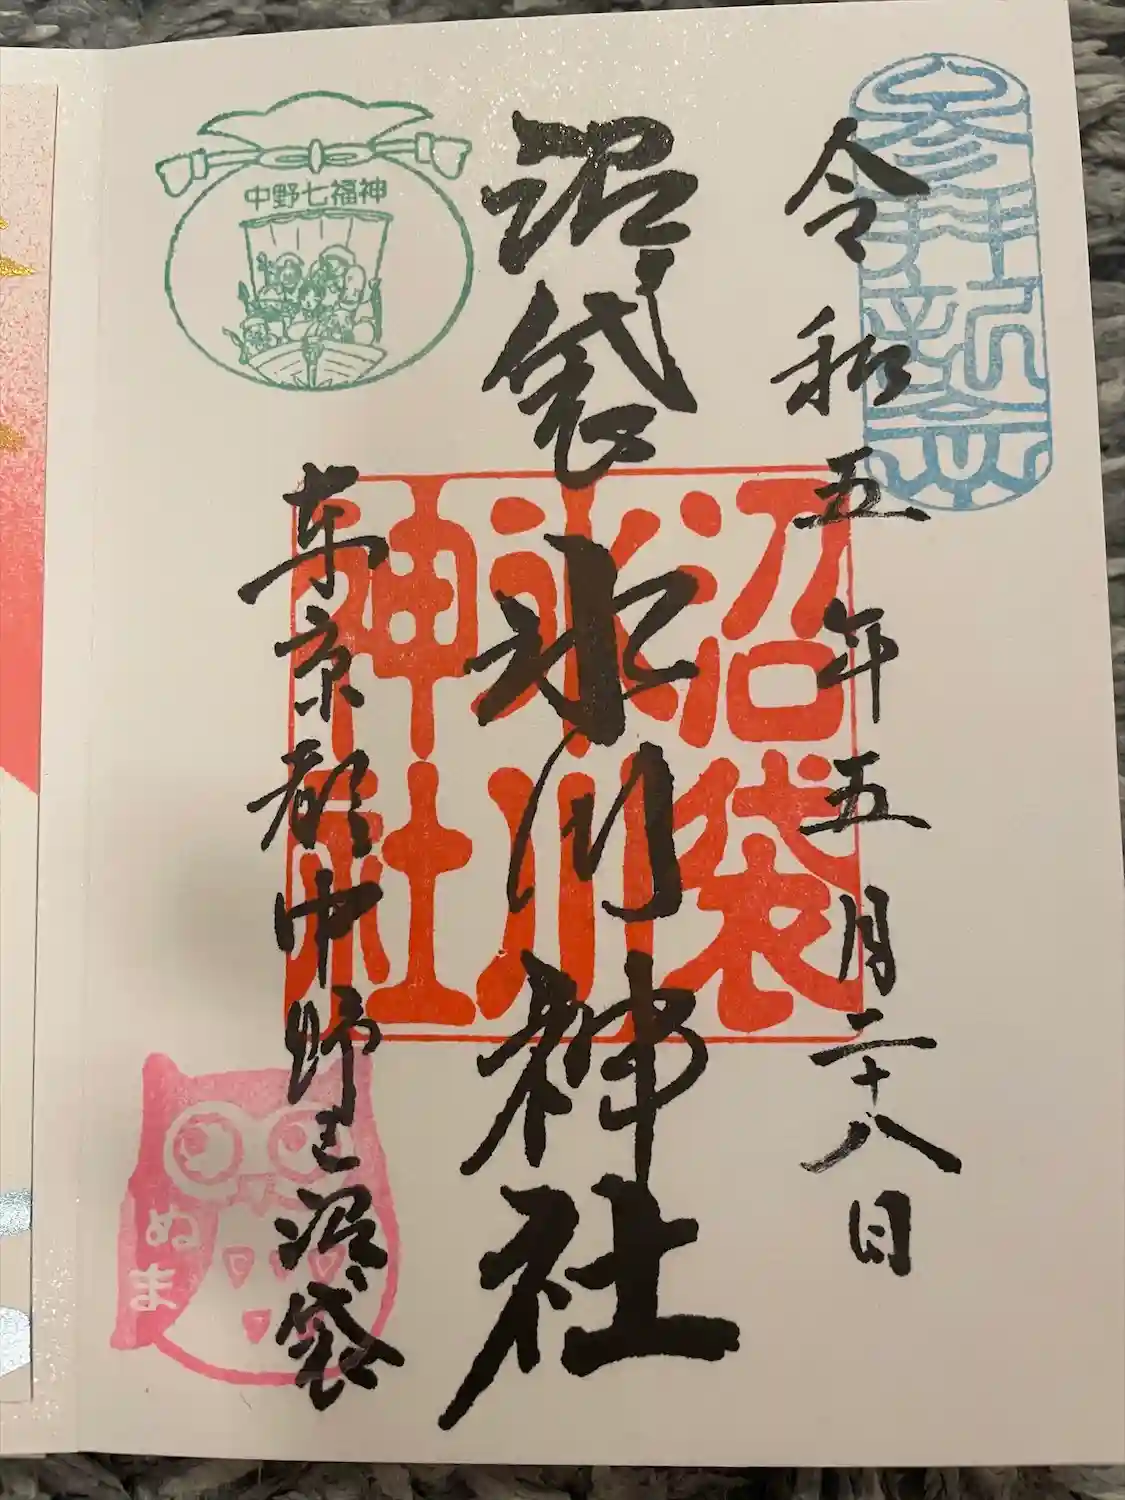 令和五年五月二十八日
沼袋氷川神社
東京都中野区沼袋
中野七福神
沼袋
氷川
神社
ぬま